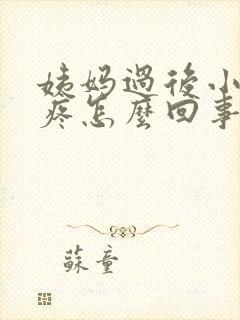 姨妈過後小
疼怎麼回事
蘇童